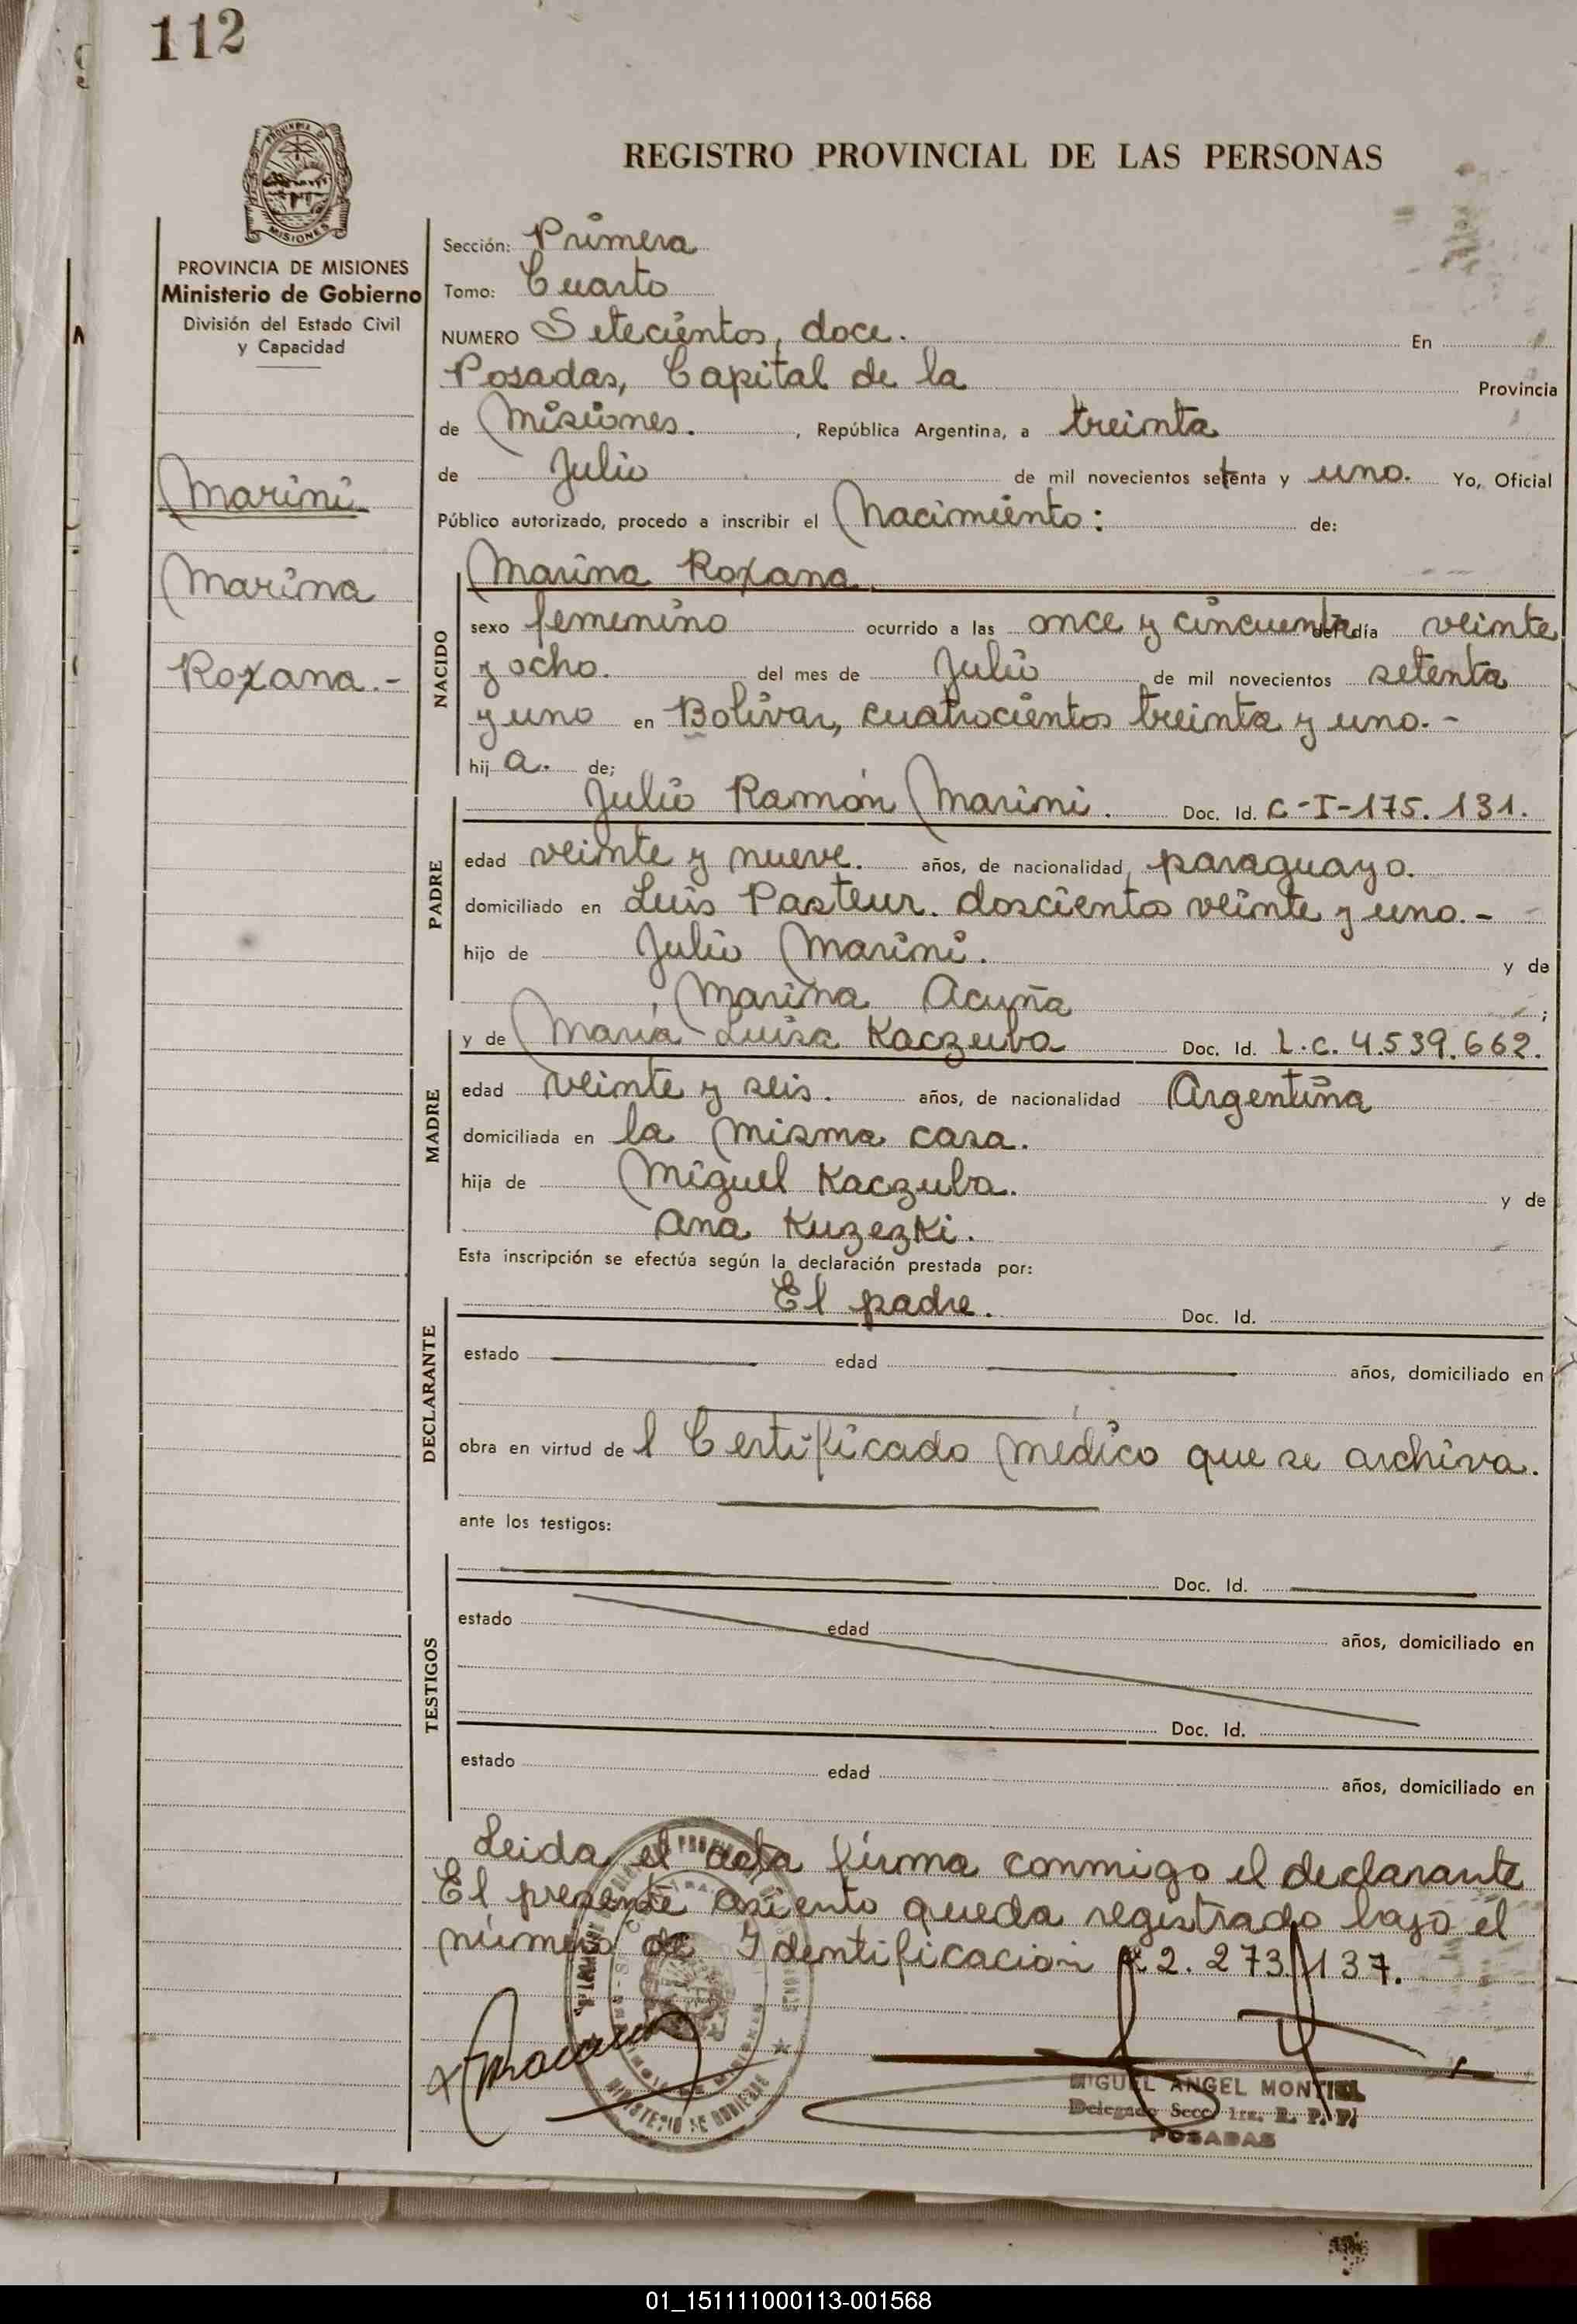 112
REGISTRO PROVINCIAL DE LAS PERSONAS
PROVINCIA DE MISIONES
Ministerio de Gobierno
División del Estado Civil
y Capacidad
Marini
Marina
Roxana.-
Sección: Primera
Tomo: Cuarto
NUMERO Setecientos, doce. En
Posadas, Capital de la Provincia
de Misiones. , República Argentina, a treinta
de Julio de mil novecientos setenta y uno. Yo, Oficial
Público autorizado, procedo a inscribir el Nacimiento: de:
NACIDO
Marina Roxana
sexo femenino ocurrido a las once y cincuenta del día veinte
y ocho. del mes de Julio de mil novecientos setenta
y uno en Bolívar, cuatrocientos treinta y uno.-
hij a. de;
PADRE
Julio Ramón Marini. Doc. Id. C-I-175.131.
edad veinte y nueve. años, de nacionalidad paraguayo.
domiciliado en Luis Pasteur. doscientos veinte y uno.-
hijo de Julio Marini. y de
Marina Acuña ;
MADRE
y de María Luisa Kaczuba Doc. Id. L.C. 4.539.662.
edad veinte y seis. años, de nacionalidad Argentina
domiciliada en la misma casa.
hija de Miguel Kaczuba. y de
Ana Kuzezki.
Esta inscripción se efectúa según la declaración prestada por:
DECLARANTE
El padre. Doc. Id.
estado edad años, domiciliado en
obra en virtud de l Certificado médico que se archiva.
ante los testigos:
TESTIGOS
Doc. Id.
estado edad años, domiciliado en
Doc. Id.
estado edad años, domiciliado en
Leida el acta firma conmigo el declarante
El presente asiento queda registrado bajo el
número de Identificación 22.273.137.
MIGUEL ANGEL MONTIEL
Delegado Secc. 1ra. R. P. P.
POSADAS
01_151111000113-001568